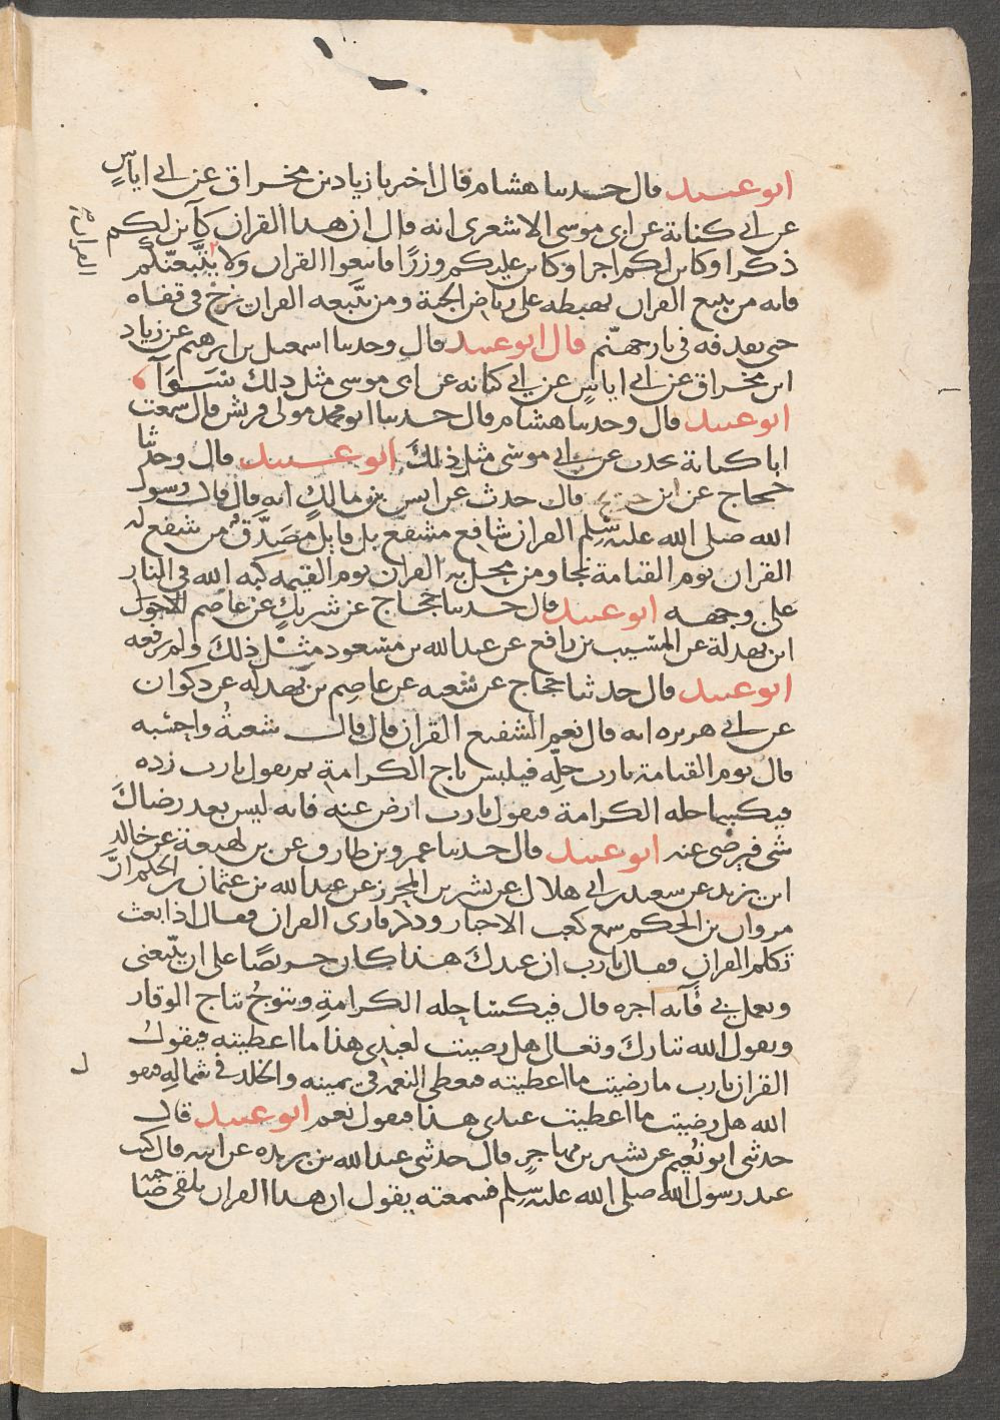 ابو عبيد قال حدثنا هشام قال اخبرنا زياد بن مخراق عن ابي اياسٍ
عن ابي كنانة عن ابي موسى الاشعري انه قال ان هذا القران كآئن لكم
ذكرا وكائن لكم اجرا وكائن عليكم وزرًا فاتبعوا القران ولا يتَّبعنّكم
القران
فانه من يتبع القران يهبط به على رياض الجنة ومن تَّبعه القران يزخ في قفاه
حتى يقذفه في نار جهنّم قال ابو عبيد قال وحدثنا اسمعيل بن ابرهيم عن زياد
ابن مخراق عن ابي اياسٍ عن ابي كنانه عن ابي موسى مثل ذلك سَوَآ
ابو عبيد قال وحدثنا هشام قال حدثنا ابو محمد مولى قريش قال سمعت
ابا كنانة يحدث عن ابي موسى مثل ذلكَ ابو عبيد قال وحدثنا
حجاج عن ابن جريج قال حدث عن انس بن مالكٍ انه قال قال رسول
الله صلى الله عليه وسلم القران شافع مشفع وماحل مصَدَّقٌ من شفع له
القران يوم القيامة نجا ومن محل به القران يوم القيمه كبه الله في النار
على وجهه ابو عبيد قال حدثنا حجاج عن شريكٍ عن عاصم الاحول
ابن بهدلة عن المسيب بن رافع عن عبد الله بن مسعود مثل ذلكَ ولم يرفعه
ابو عبيد قال حدثنا حجاج عن شعبه عن عاصم بن بَهدله عن ذكوان
عن ابي هريره انه قال نعم الشفيع القران قال قال شعبةُ واحسبه
قال يوم القيامة يارب حلِّه فيلبس تاج الكرامة ثم يقول يارب زده
فيكسى حله الكرامة فيقول يارب ارض عنه فانه ليس بعد رضاكَ
شي فيرضى عنه ابو عبيد قال حدثنا عمرو بن طارق عن بن لهيعة عن خالد
ابن يزيد عن سعيد بن ابي هلال عن بشر بن المحرز عن عبد الله بن عثمان بن الحكم انَّ
مروان بن الحكم سمع كعب الاحبار وذكر قارى القران فقال اذا بعث
تكلم القران فقال يارب ان عبدكَ هذا كان حريصًا على ان يتّبعني
ويعمل بي فَآته اجره قال فيكسا حله الكرامةِ ويتوجُ بتاج الوقار
ويقول الله تبارك وتعالى هل رضيت لعبدي هذا ما اعطيته فيقولُ
القران يارب ما رضيت ما اعطيته فيعطى النعمه في يمينه والخلد في شماله فيقول
الله هل رضيت ما اعطيت عبدي هذا فيقول نعم ابو عبيد قال
حدثني ابو نُعيم عن بشير بن مهاجرٍ قال حدثني عبد الله بن بريده عن ابيه قال كنت
عند رسول الله صلى الله عليه وسلم فسمعته يقول ان هذا القران يلقى صاحبه